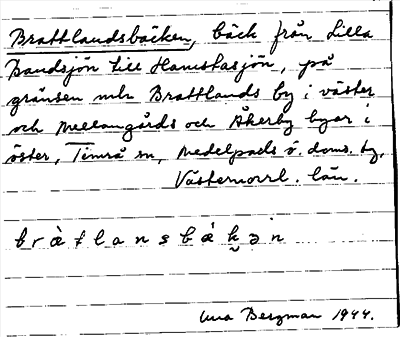 Brattlandsbäcken, bäck från Lilla
Bandsjön till Hamstasjön, på
gränsen mln Brattlands by i väster
och Mellangårds och Åkerby byar i
öster, Timrå sn, Medelpads ö. doms. tg,
Västernorrl. län.
bràtlansbákən
Bergman 1944.